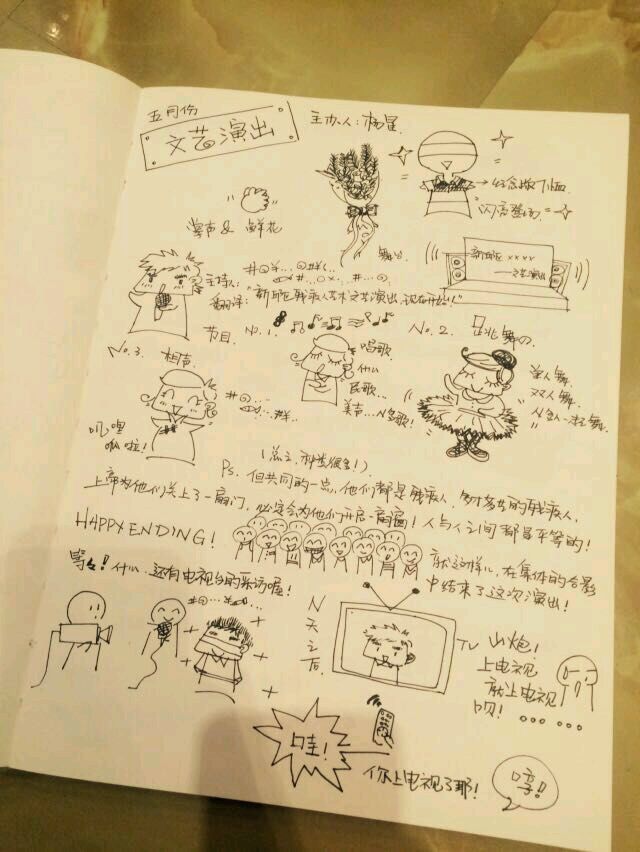 五月份
文艺演出
主办人：杨星.
闪亮登场.=
掌声& 鲜花
舞台.
#@¥...@#¥&..
主持人:
翻译:"新 残疾人艺术文艺演出,现在开始!!"
新 xxxx
——文艺演出
节目. No.1.
No.2.
No.3. 相声.
唱歌.
什么
民歌...
美声...N多歌!
单人舞.
双人舞.
叽哩
呱啦!
(总之,种类很多!)
Ps. 但共同的一点,他们都是残疾人,多才多艺的残疾人,
上帝为他们关上了一扇门,必定会为他们开启一扇窗!人与人之间都是平等的!
HAPPY ENDING!
就这样儿,在集体的合影
中结束了这次演出!
等等!什么,还有电视台的采访喔!
N天之后
TV
山炮!
上电视
就上电视
呗!......
哇!
你上电视了耶!
嗯!